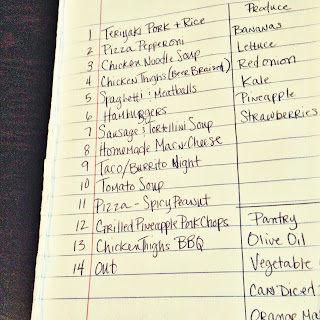 1 Teriyaki Pork + Rice
2 Pizza Pepperoni
3 Chicken Noodle Soup
4 Chicken Thighs (Beer Braised)
5 Spaghetti & Meatballs
6 Hamburgers
7 Sausage & Tortellini Soup
8 Homemade Mac n Cheese
9 Taco/Burrito Night
10 Tomato Soup
11 Pizza - Spicy Peanut
12 Grilled Pineapple Pork Chops
13 Chicken Thighs BBQ
14 Out
Produce
Bananas
Lettuce
Red onion
Kale
Pineapple
Strawberries
Pantry
Olive Oil
Vegetable
Can Diced
Orange